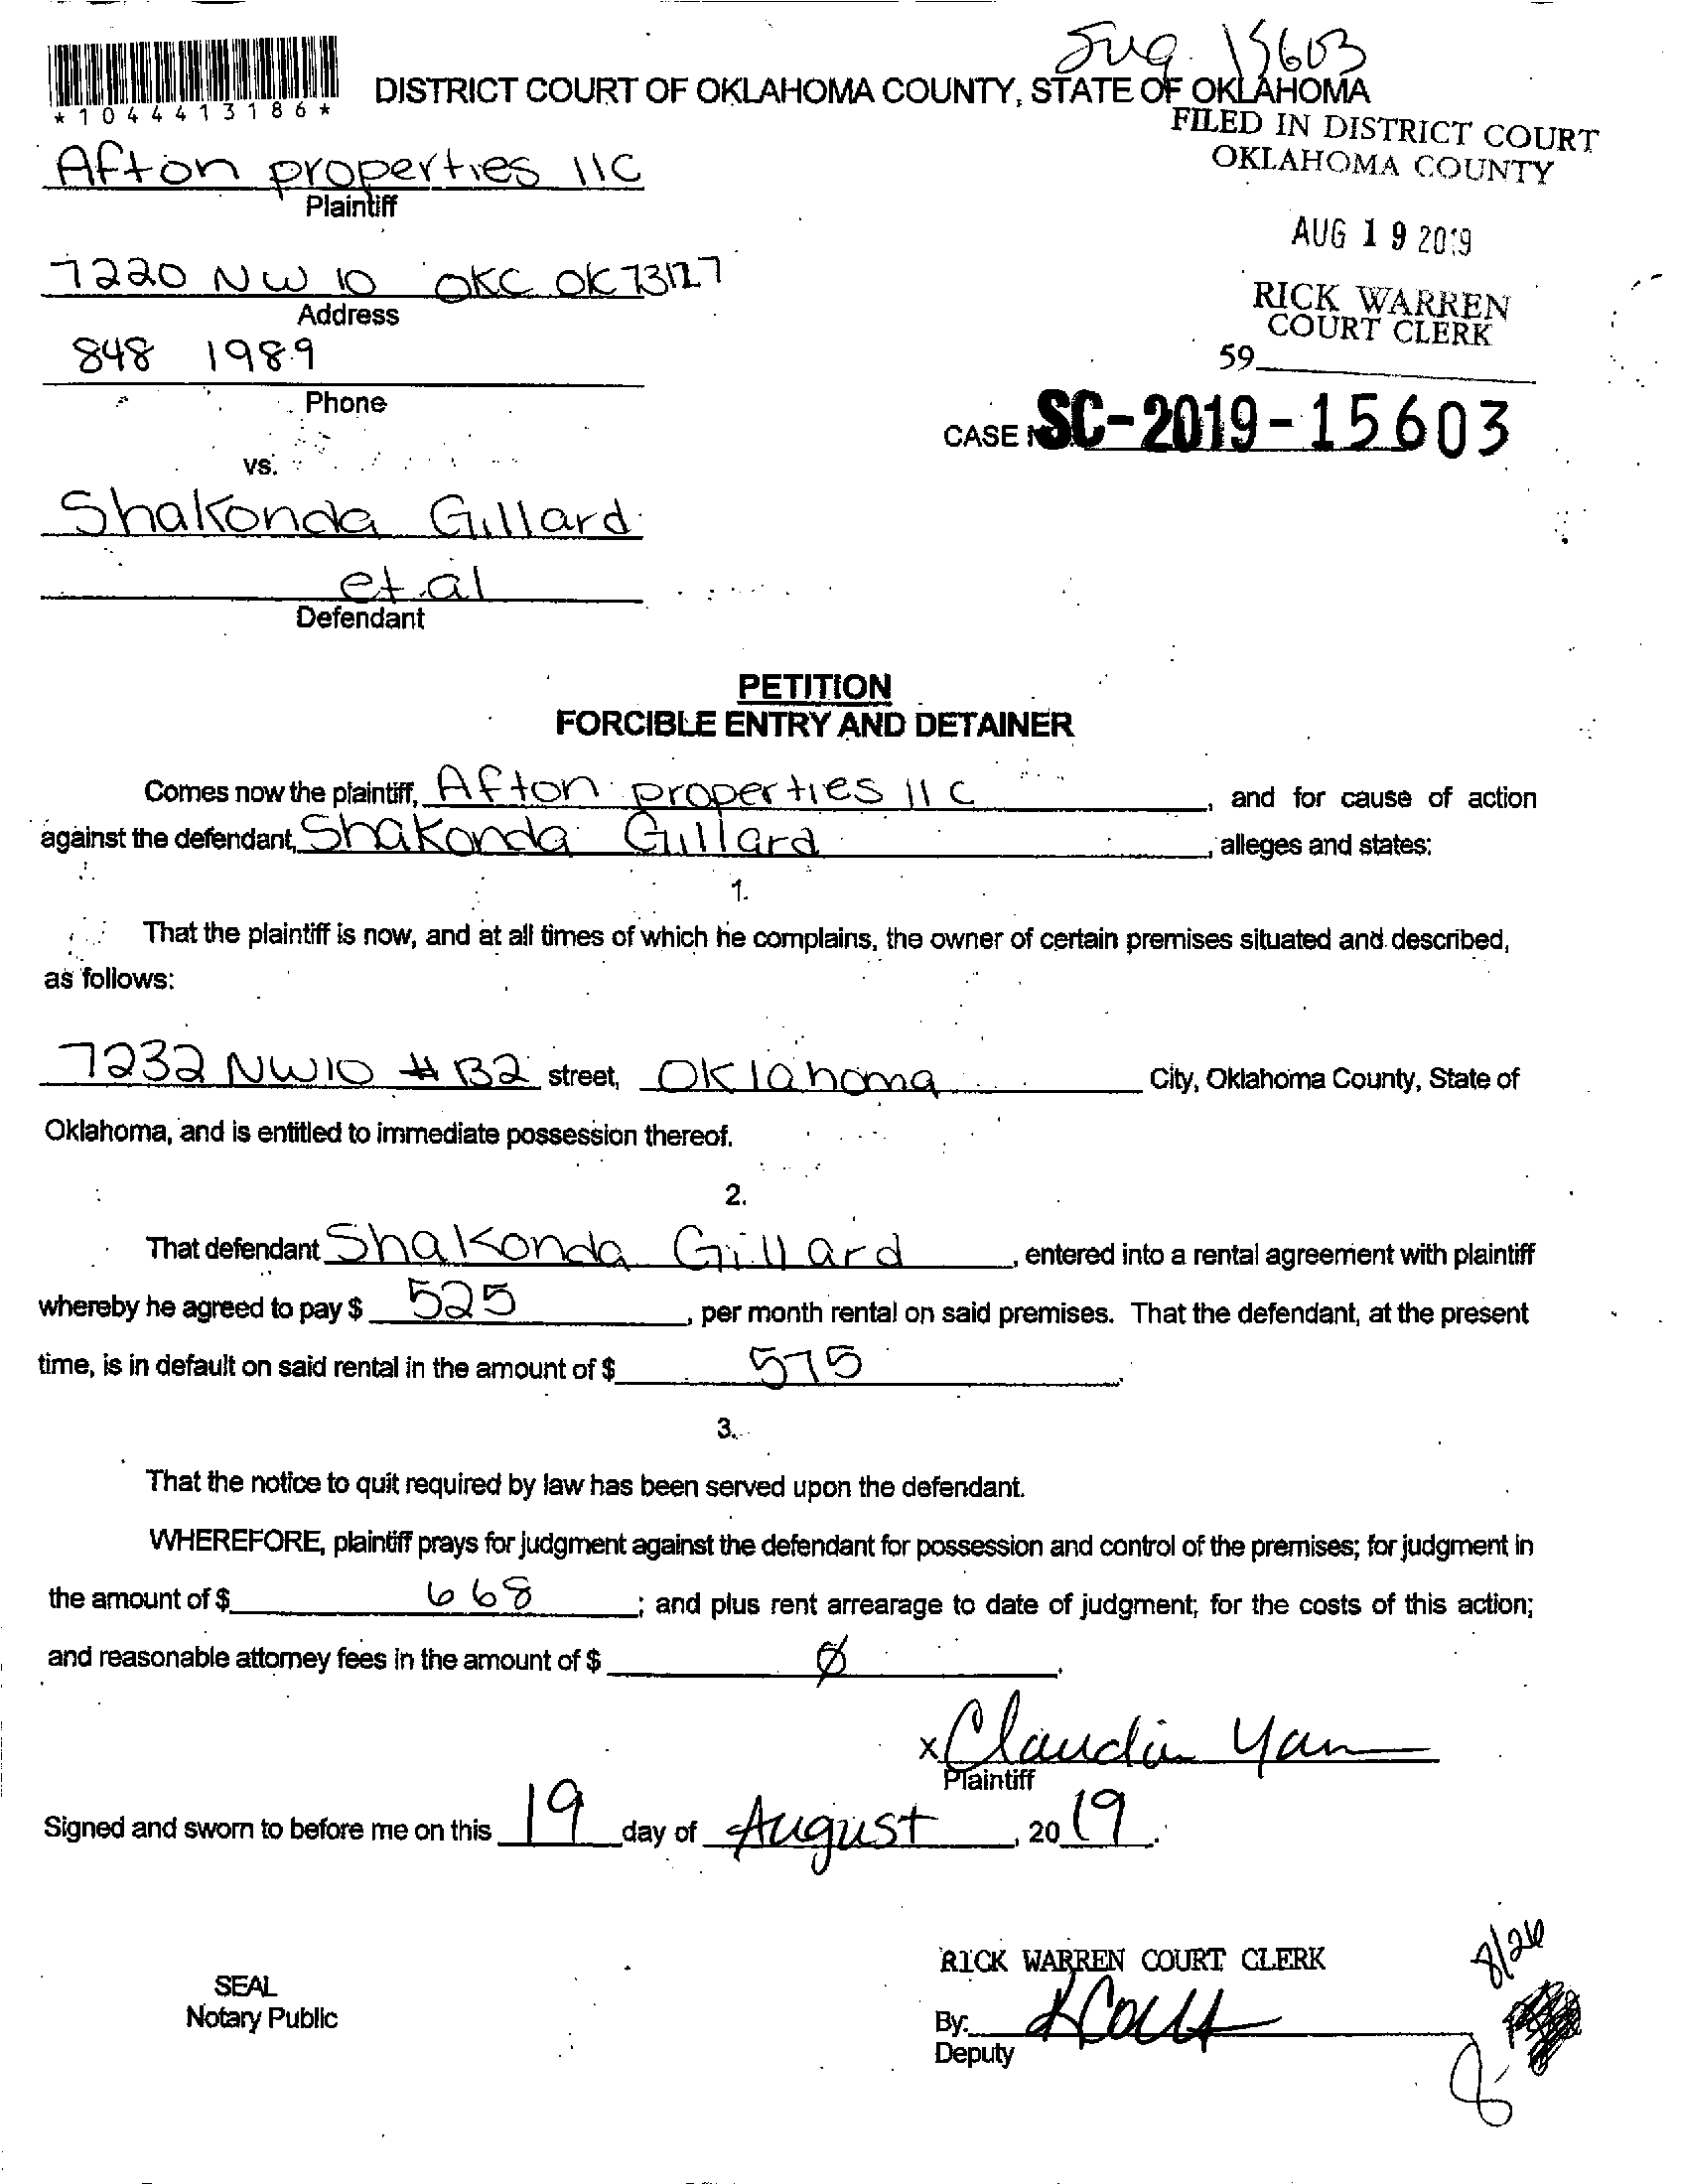 Jug. 15603
*1044413186*
DISTRICT COURT OF OKLAHOMA COUNTY, STATE OF OKLAHOMA
FILED IN DISTRICT COURT
OKLAHOMA COUNTY
Afton properties llc
Plaintiff
AUG 19 2019
7220 NW 10 OKC OK 73127
Address
RICK WARREN
COURT CLERK
848 1989
59
Phone
CASE SC-2019-15603
vs.
Shakonda Gillard
et al
Defendant
PETITION
FORCIBLE ENTRY AND DETAINER
Comes now the plaintiff, Afton properties llc, and for cause of action
against the defendant, Shakonda Gillard, alleges and states:
1.
That the plaintiff is now, and at all times of which he complains, the owner of certain premises situated and described,
as follows:
7232 NW10 # B2 street, Oklahoma City, Oklahoma County, State of
Oklahoma, and is entitled to immediate possession thereof.
2.
That defendant Shakonda Gillard, entered into a rental agreement with plaintiff
whereby he agreed to pay $ 525, per month rental on said premises. That the defendant, at the present
time, is in default on said rental in the amount of $ 575
3.
That the notice to quit required by law has been served upon the defendant.
WHEREFORE, plaintiff prays for judgment against the defendant for possession and control of the premises; for judgment in
the amount of $ 668; and plus rent arrearage to date of judgment; for the costs of this action;
and reasonable attorney fees in the amount of $ Ø.
x Claudia Yan
Plaintiff
Signed and sworn to before me on this 19 day of August, 2019.
RICK WARREN COURT CLERK
8/26
SEAL
Notary Public
By:
Deputy